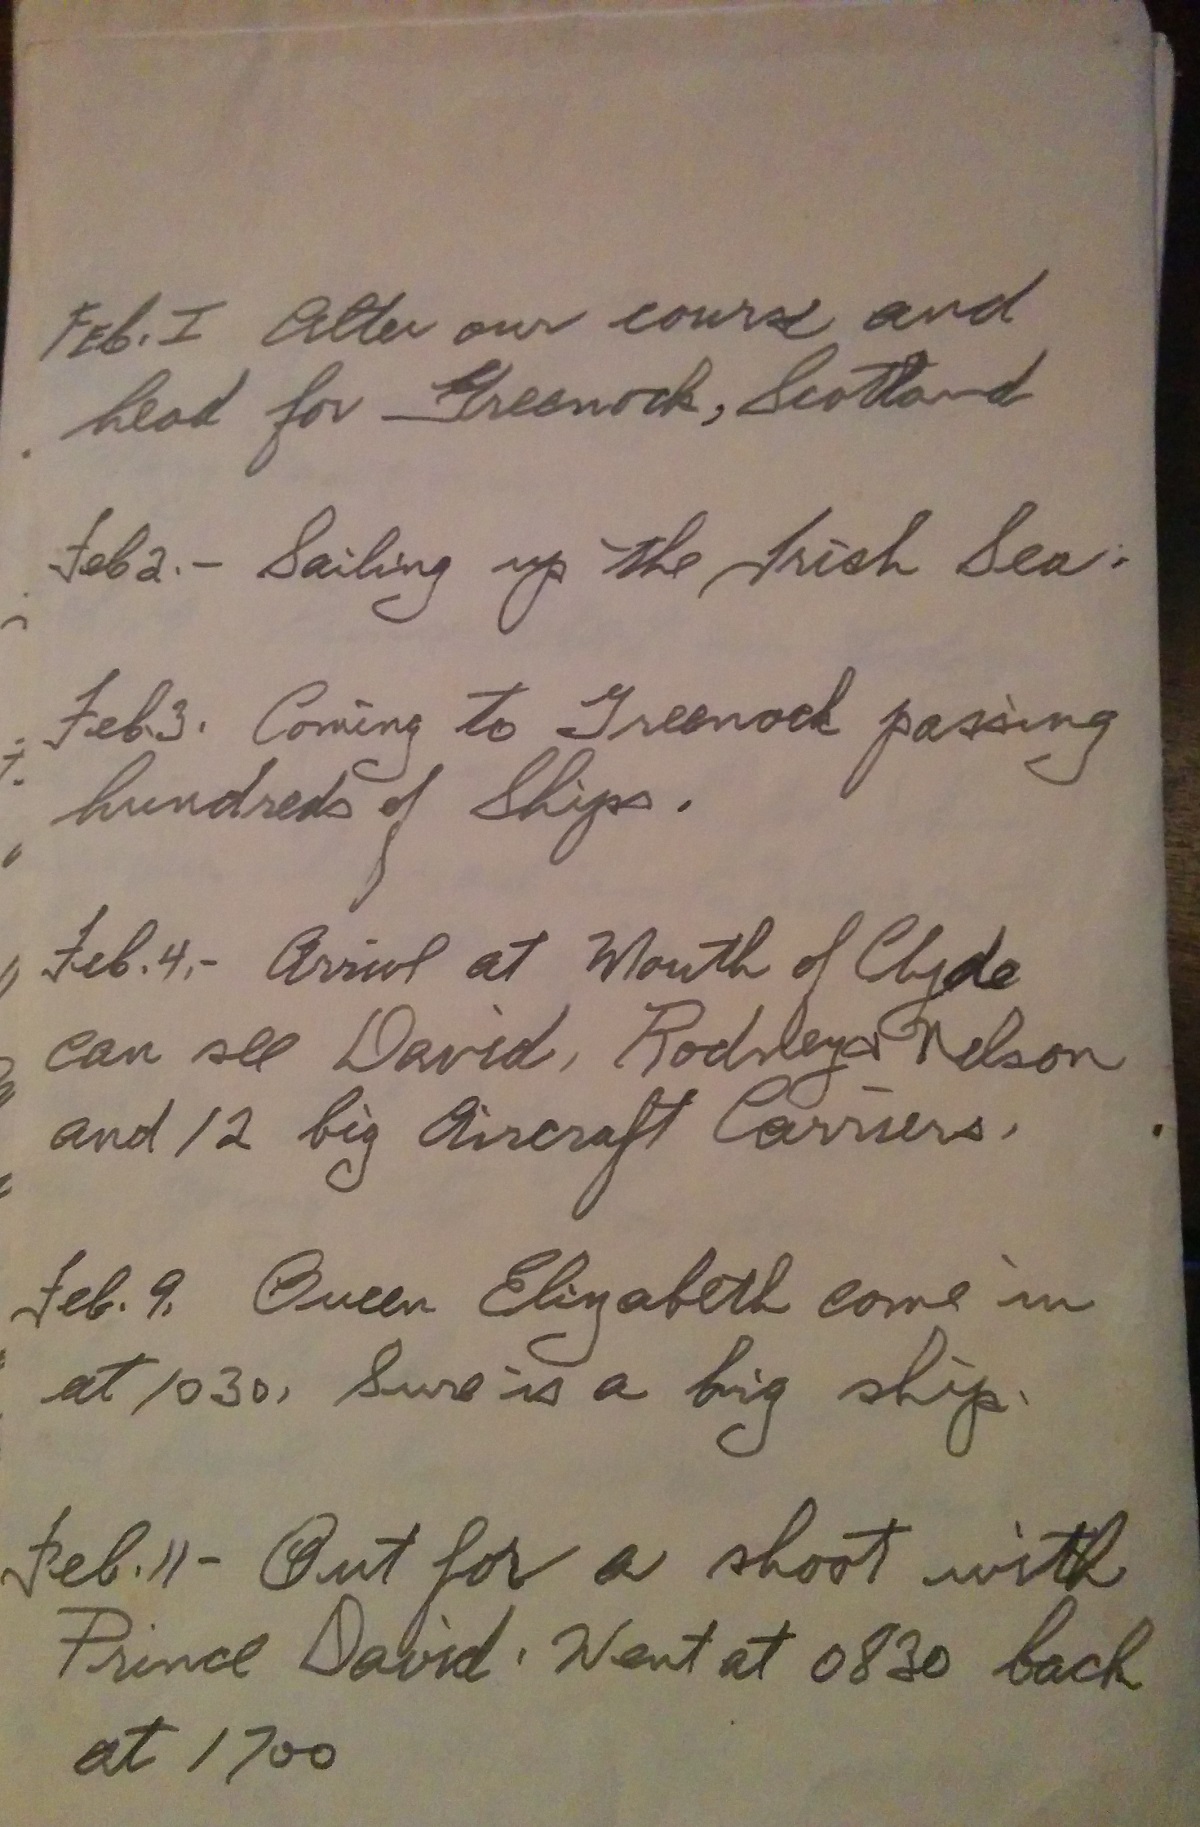 Feb. I Alter our course and
head for Greenock, Scotland
Feb 2. - Sailing up the Irish Sea.
Feb. 3. Coming to Greenock passing
hundreds of Ships.
Feb. 4. - Arrive at Mouth of Clyde
can see David, Rodney & Nelson
and 12 big Aircraft Carriers.
Feb. 9. Queen Elizabeth come in
at 1030. Sure is a big ship.
Feb. 11 - Out for a shoot with
Prince David. Went at 0830 back
at 1700